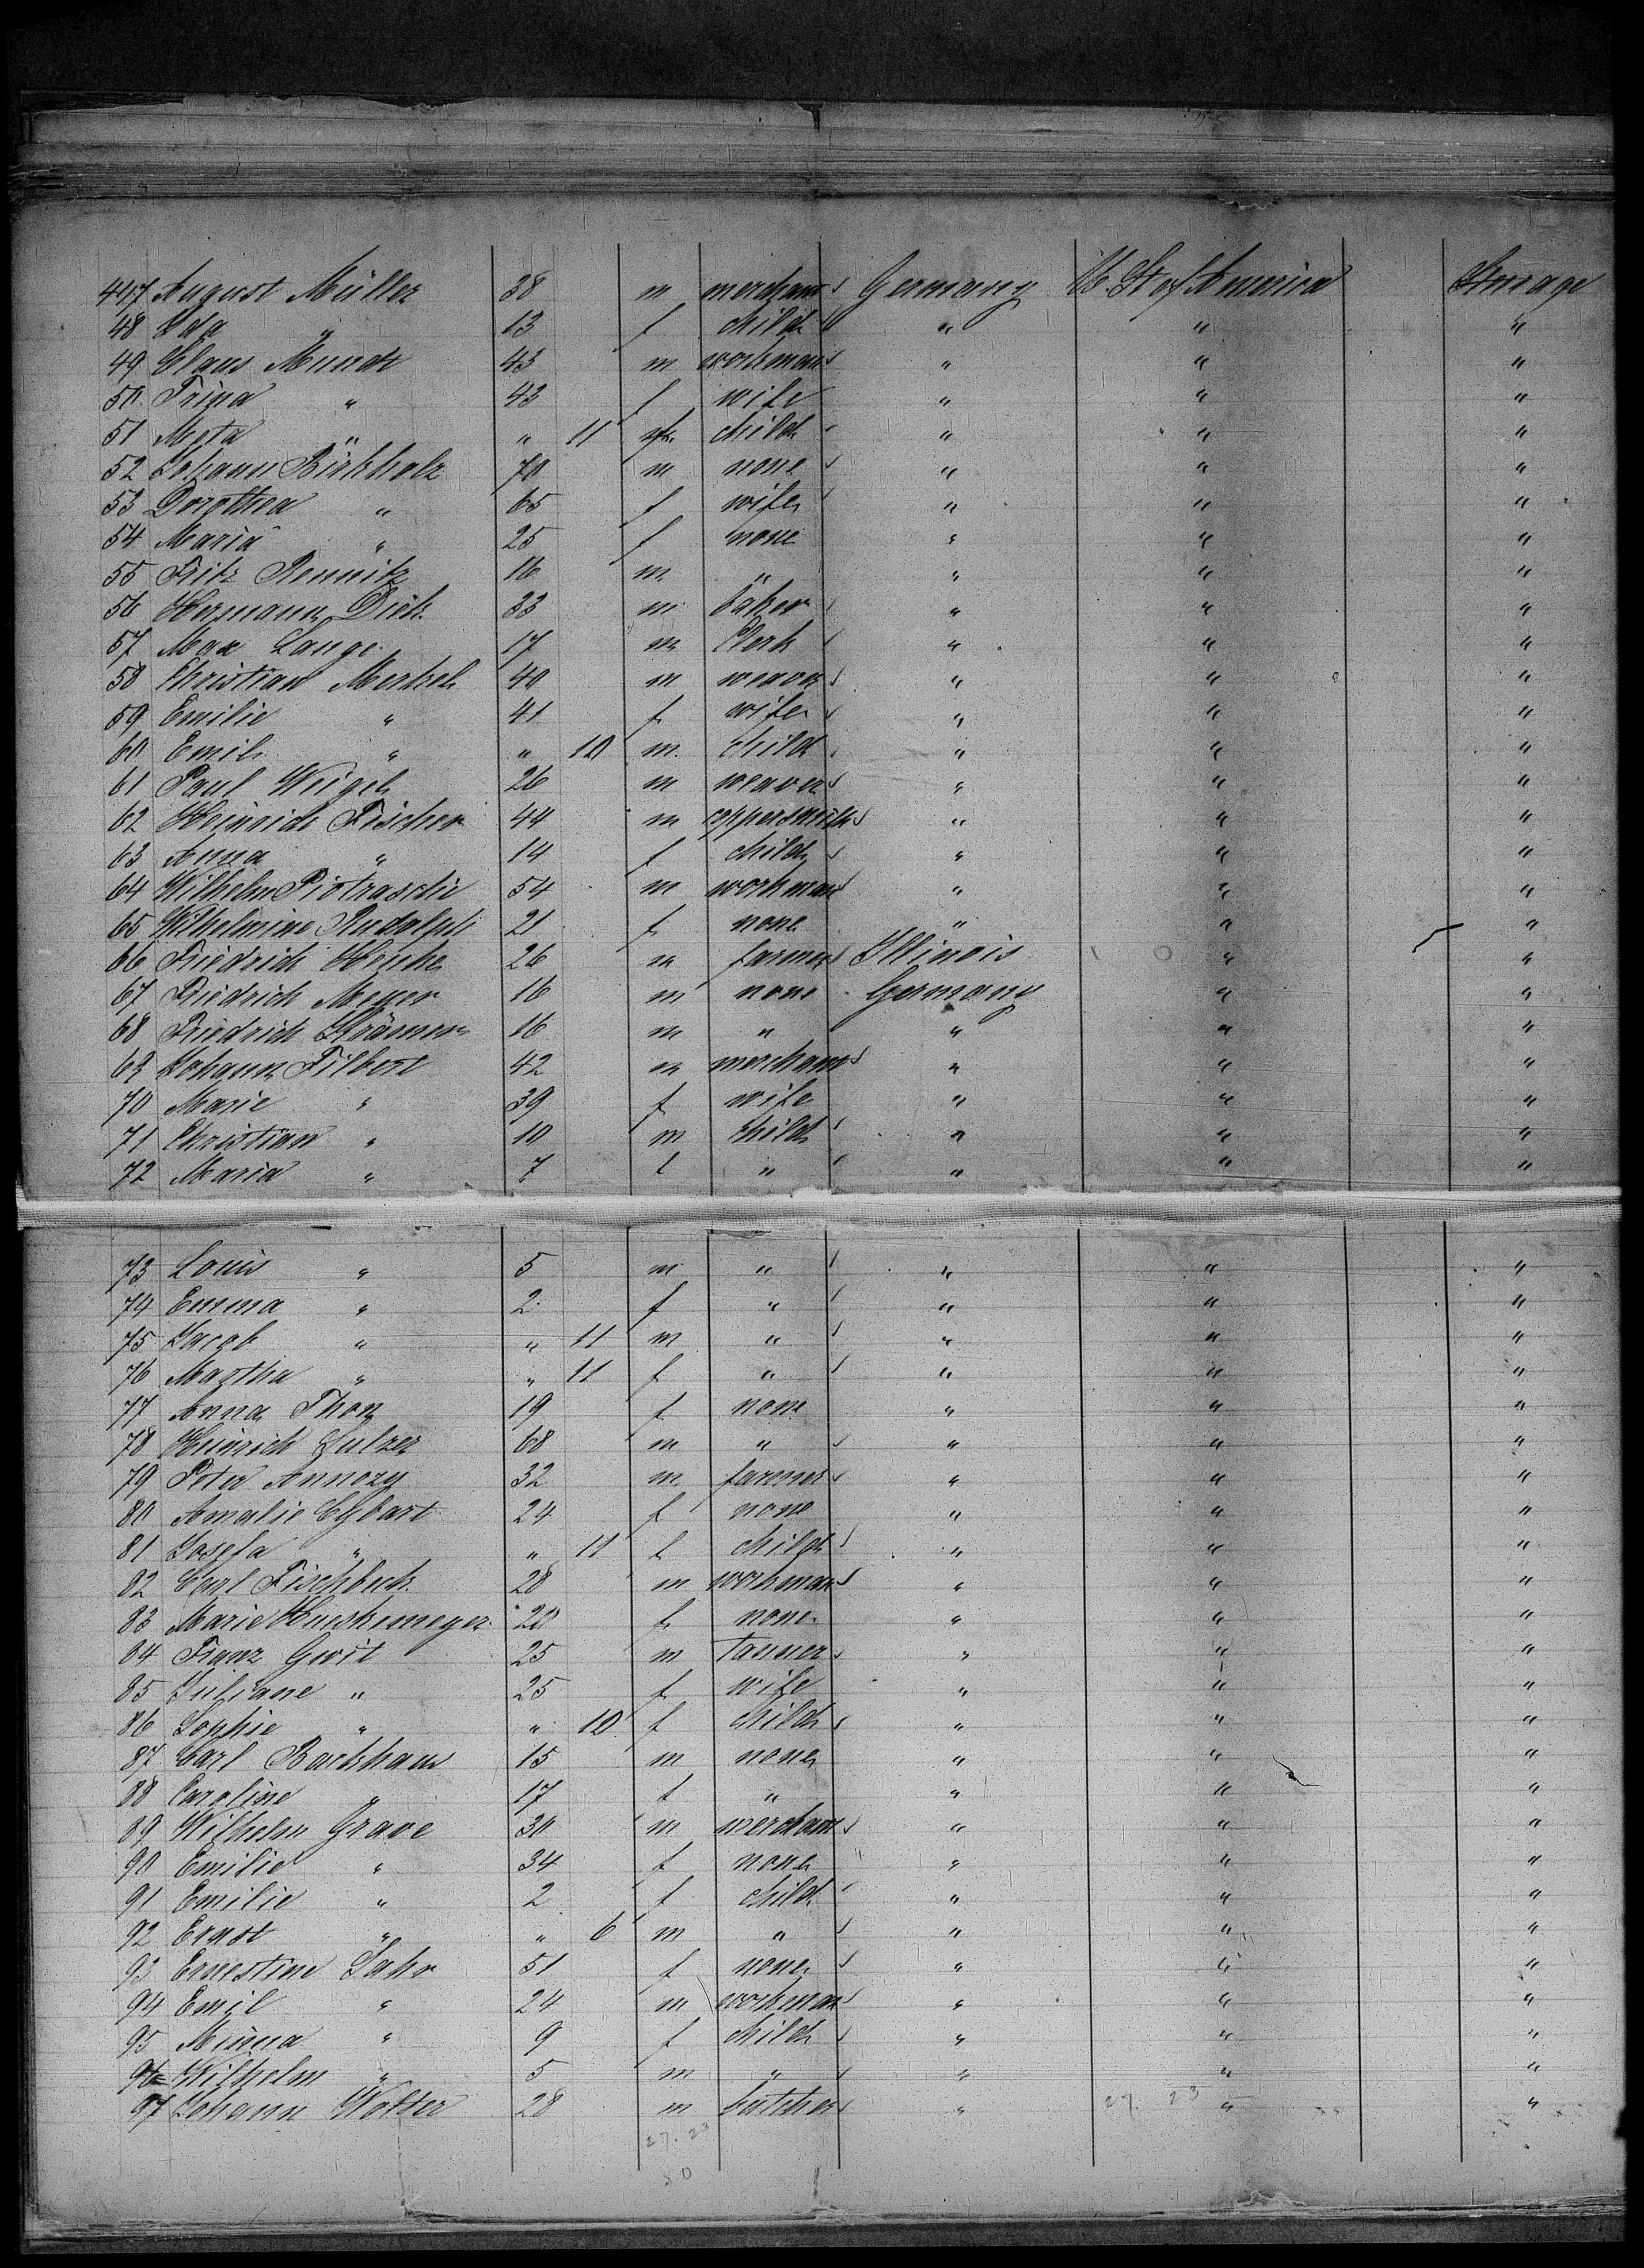 447 August Müller 38 m merchant Germany U. St of America Steerage
48 Ida " 13 f child " " "
49 Claus Mundt 43 m workman " " "
50 Trina " 43 f wife " " "
51 Meta " " 11 child " " "
52 Johann Birkholz 70 m none " " "
53 Dorothea " 65 f wife " " "
54 Maria " 25 f none " " "
55 Fritz 16 m " " " "
56 Hermann Dick 33 m baker " " "
57 Max Lange 17 m Clerk " " "
58 Christian Merkel 40 m weaver " " "
59 Emilie " 41 f wife " " "
60 Emil " " 10 m child " " "
61 Paul Weigel 26 m weaver " " "
62 Heinrich Fischer 44 m coppersmith " " "
63 Anna " 14 f child " " "
64 Wilhelm 54 m workman " " "
65 Wilhelmine Rudolph 21 f none " " "
66 Friedrich Henke 26 m farmer Illinois " "
67 Friedrich Meyer 16 m none Germany " "
68 Friedrich 16 m " " " "
69 Johann Filbert 42 m merchant " " "
70 Marie " 39 f wife " " "
71 Christian " 10 m child " " "
72 Maria " 7 f " " " "
73 Louis " 5 m " " " "
74 Emma " 2 f " " " "
75 Jacob " " 11 m " " " "
76 Martha " " 11 f " " " "
77 Anna Thon 19 f none " " "
78 Heinrich Sulzer 68 m " " " "
79 Peter 32 m farmer " " "
80 Amalie 24 f none " " "
81 Josefa " " 11 f child " " "
82 Carl Fischbeck 28 m workman " " "
83 Marie 20 f none " " "
84 Franz 25 m Tanner " " "
85 Juliane " 25 f wife " " "
86 Sophie " " 10 f child " " "
87 Carl Barkhau 15 m none " " "
88 Caroline " 17 f " " " "
89 Wilhelm Grave 30 m merchant " " "
90 Emilie " 34 f none " " "
91 Emilie " 2 f child " " "
92 Ernst " " 6 m " " " "
93 Ernestine Lahr 51 f none " " "
94 Emil " 24 m workman " " "
95 Minna " 9 f child " " "
96 Wilhelm " 5 m " " " "
97 Johann Wolter 28 m butcher " 27. 23 " "
27. 23
50